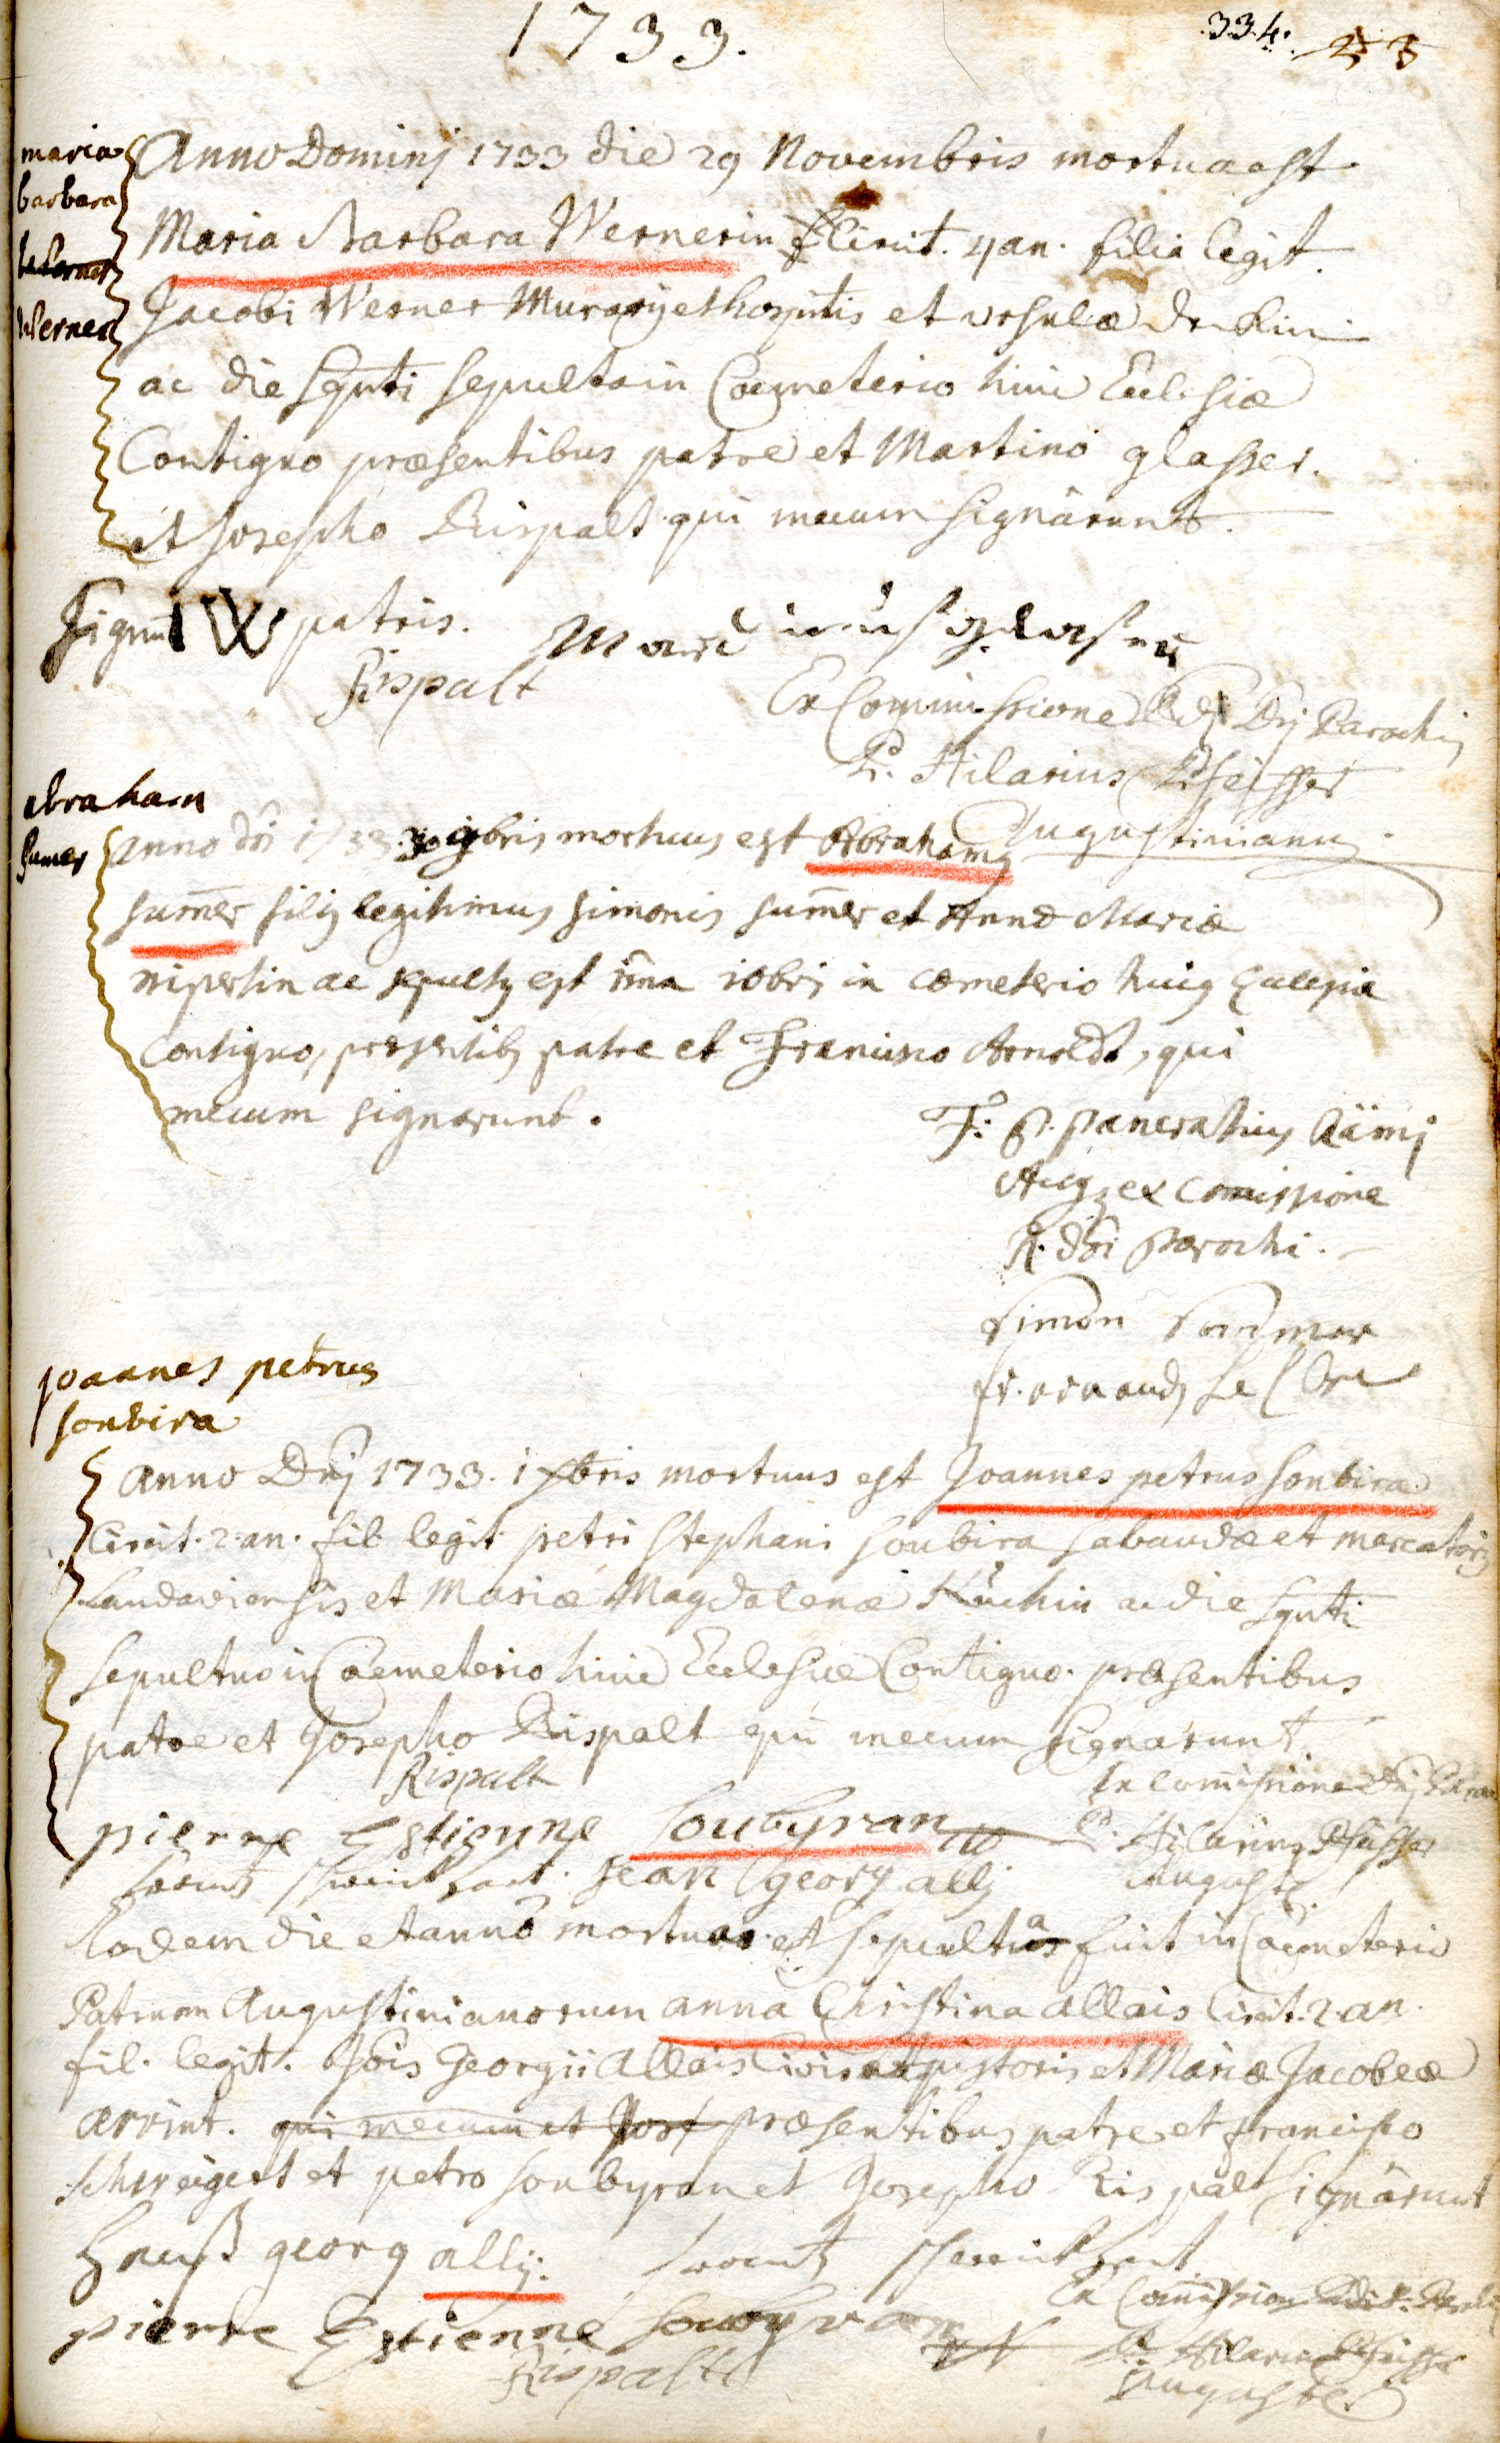 1733.
334.
maria
barbara
Werner
Anno Dominj 1733 die 29 Novembris mortua est
Maria Barbara Wernerin Circit. 4 an. filia legit.
Jacobi Werner Murarij et hospitis et ursulæ
ac die sequti sepulta in Coemeterio huic Ecclesiæ
Contiguo præsentibus patre et Martino glasser.
et Josepho Rispalt qui mecum signârunt.
Signum W patris.
Rispalt
Ex Commissione Rdj Dnj Parochi
P. Hilarius
Augustinianus
abraham
sumer
anno dni 1733 30 9bris mortuus est Abrahamg
sum̅er filig legitimus simonis sum̅er et Annæ Mariæ
nipertin ac sepultg est 1ma 10bris in cœmeterio huig Ecclesiæ
contiguo, præsentibg patre et Francisco Arnoldt, qui
mecum signarunt.
F: P. Pancratius Rämj
Aug: ex Comissione
R. dni Parochi.
Simon Sommer
fr. arnaud
joannes petrus
soubira
Anno Dnj 1733. 1 Xbris mortuus est Joannes petrus soubira
Circit. 2. an. fil. legit. petri stephani soubira sabaudæ et mercatoris
Landaviensis et Mariæ Magdalenæ Kuchin ac die sequti
sepultus in Coemeterio huic Ecclesiæ Contiguo. præsentibus
patre et Josepho Rispalt qui mecum signarunt.
Rispalt
Ex Comissione Dnj
pierre Estienne Soubyran
P. Hilarius
Jean georg allij
August.
Eodem die et anno mortua est sepulta fuit in Coemeterio
Patrum Augustinianorum anna Christina allais Circit. 2. an.
fil. legit. Jois Georgii Allais Civis pistoris et Mariæ Jacobeæ
arvint. qui mecum et Jos præsentibus patre et francisco
schweigert et petro soubyran et Josepho Rispalt signârunt
georg allij.
Ex Comission
pierre Estienne Soubyran
P. Hilarius
Rispalt
August